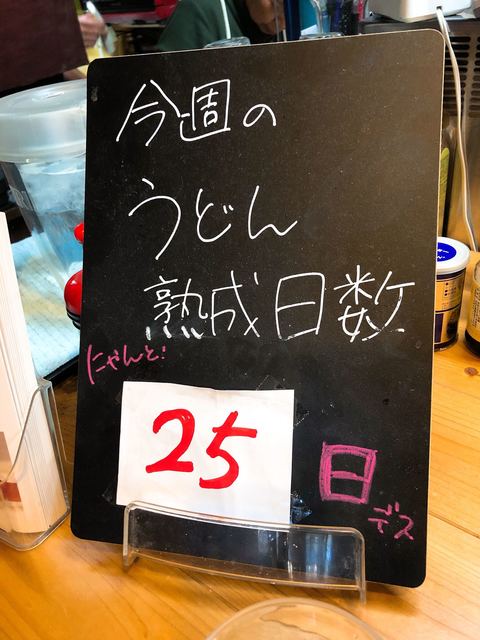 今週の
うどん
熟成日数
にゃんと!
25
日
デス